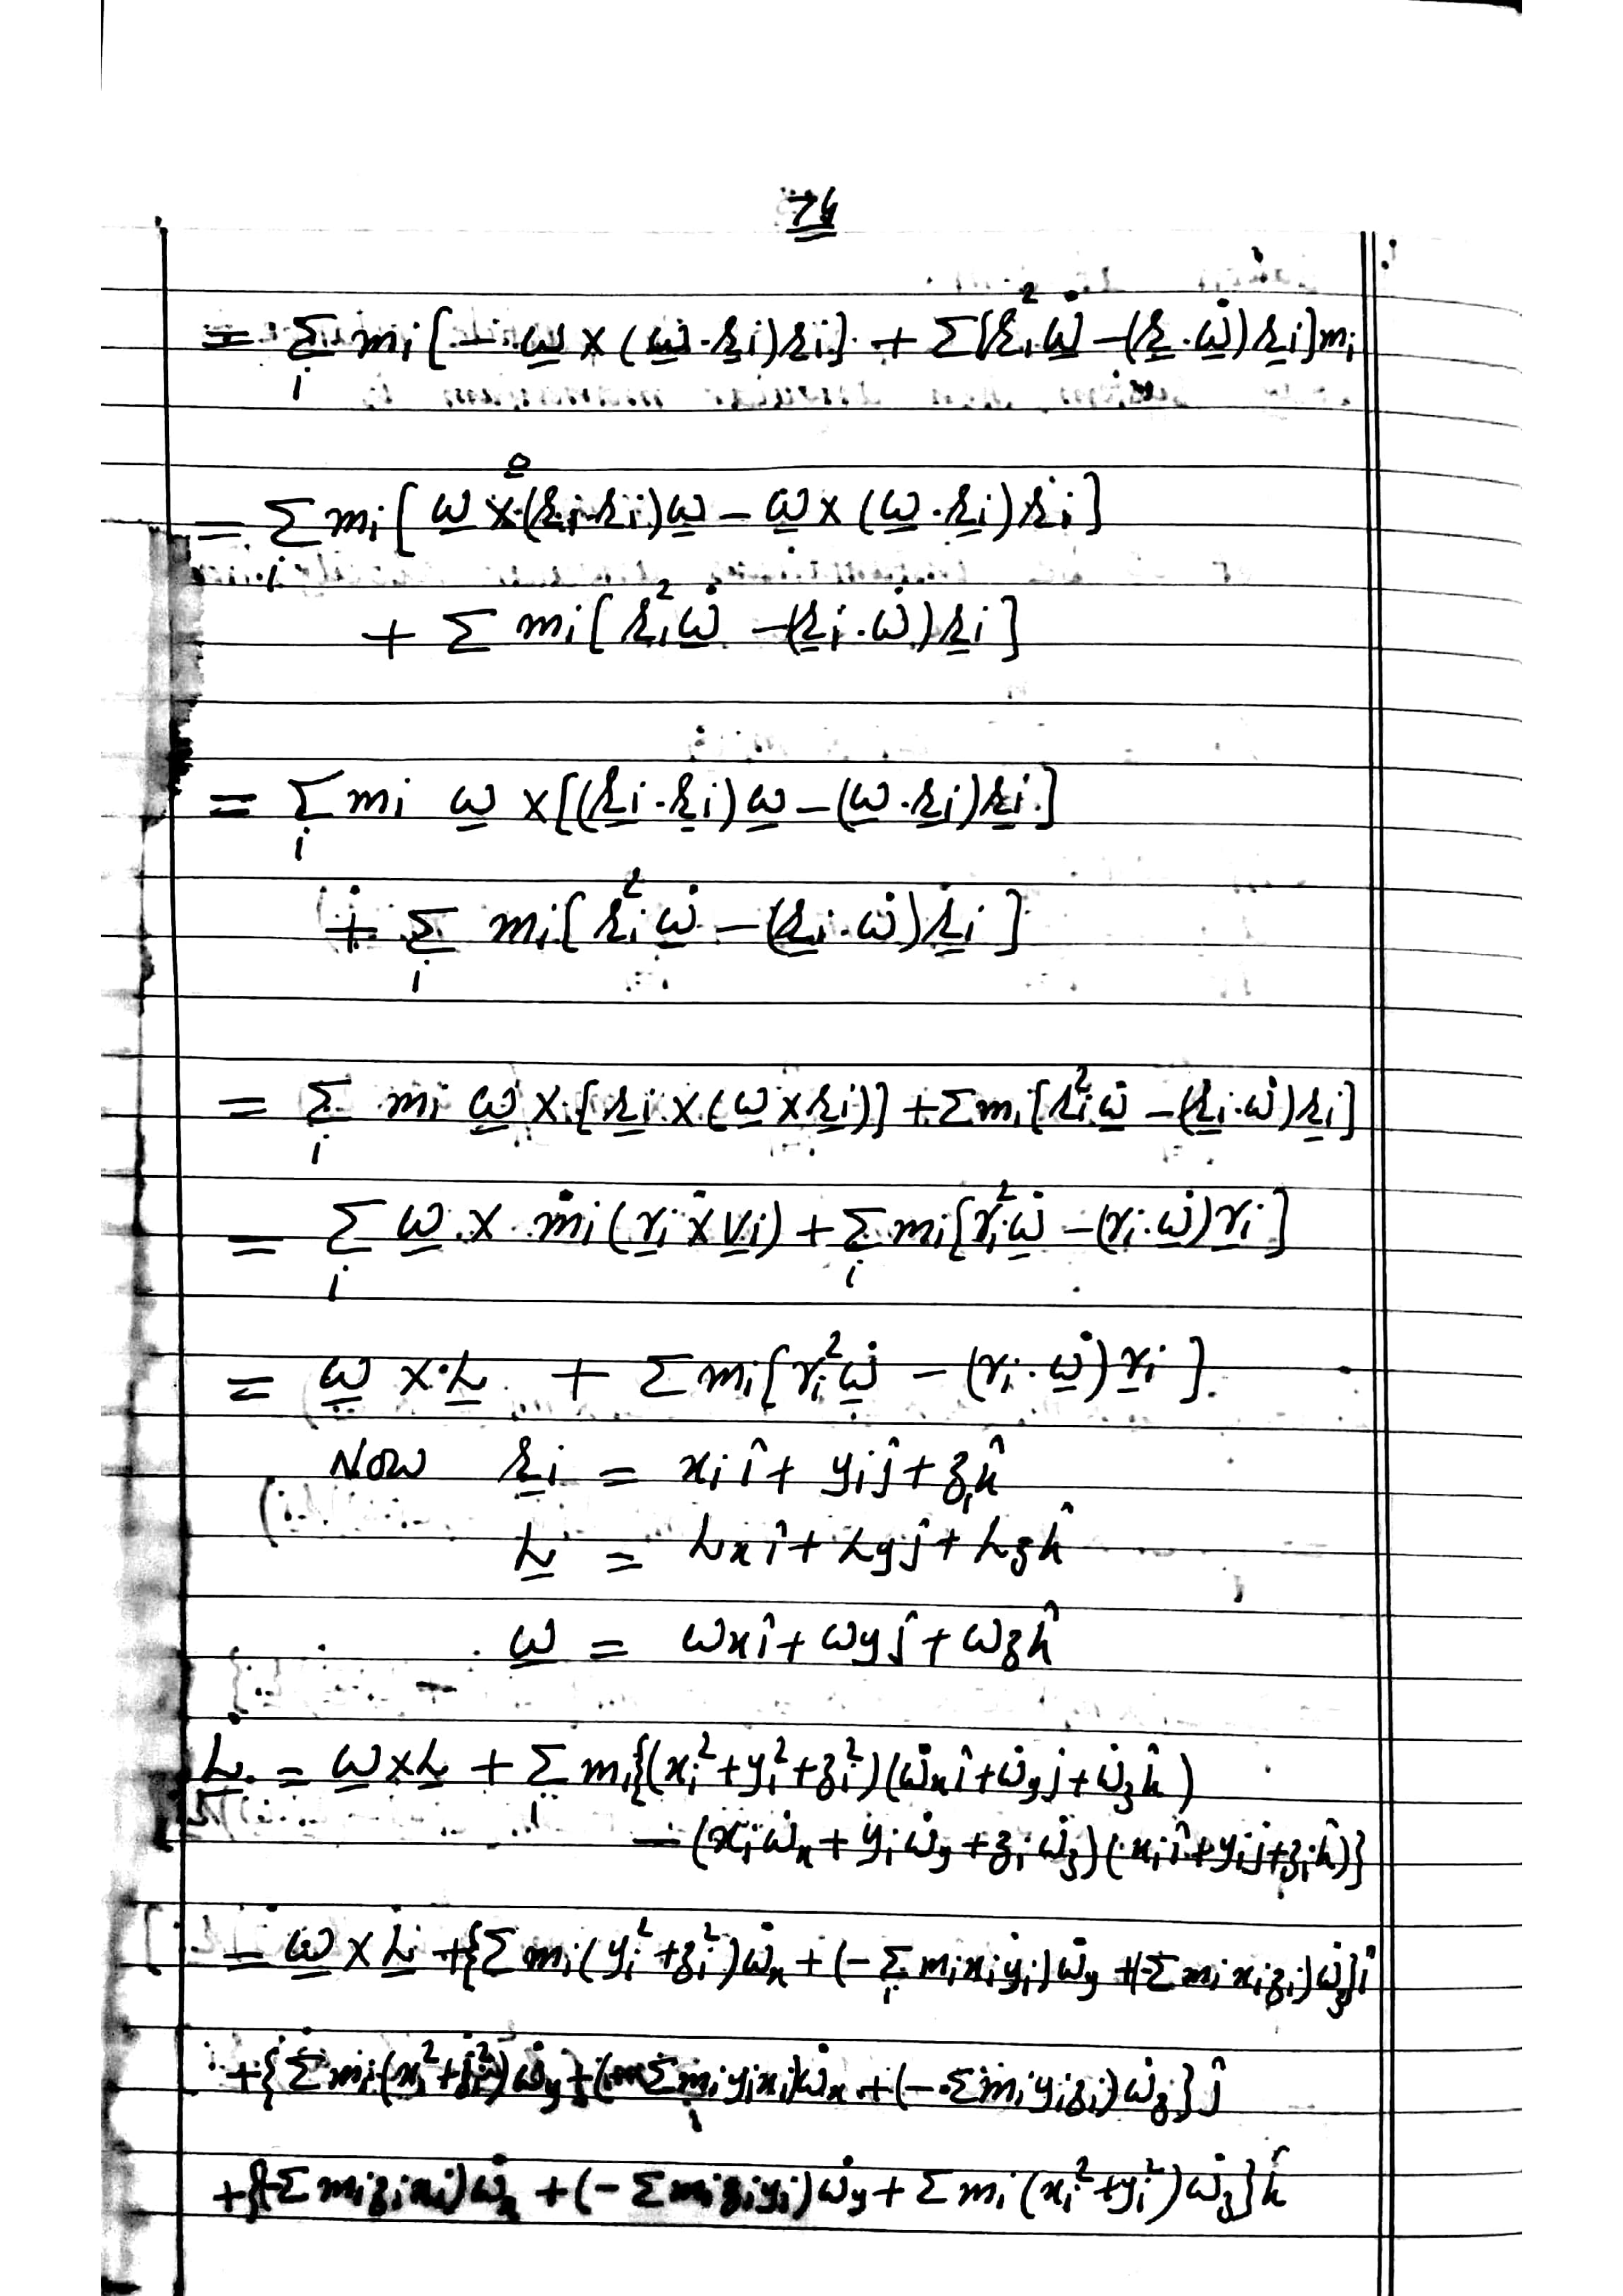 74
= Σ_i m_i [ - ω̲ × (ω̲ · r̲_i) r̲_i ] + Σ [ r_i² ω̲̇ - (r̲ · ω̲̇) r̲_i ] m_i
0
= Σ_i m_i [ ω̲ × (r̲_i · r̲_i) ω̲ - ω̲ × (ω̲ · r̲_i) r̲_i ]
+ Σ m_i [ r_i² ω̲̇ - (r̲_i · ω̲̇) r̲_i ]
= Σ_i m_i ω̲ × [ (r̲_i · r̲_i) ω̲ - (ω̲ · r̲_i) r̲_i ]
+ Σ_i m_i [ r_i² ω̲̇ - (r̲_i · ω̲̇) r̲_i ]
= Σ_i m_i ω̲ × [ r̲_i × (ω̲ × r̲_i) ] + Σ m_i [ r_i² ω̲̇ - (r̲_i · ω̲̇) r̲_i ]
= Σ_i ω̲ × m_i ( r̲_i × v̲_i ) + Σ_i m_i [ r_i² ω̲̇ - (r_i · ω̲̇) r̲_i ]
= ω̲ × L̲ + Σ m_i [ r_i² ω̲̇ - (r_i · ω̲̇) r̲_i ]
Now r̲_i = x_i î + y_i ĵ + z_i k̂
L̲ = L_x î + L_y ĵ + L_z k̂
ω̲ = ω_x î + ω_y ĵ + ω_z k̂
L̲̇ = ω̲ × L̲ + Σ_i m_i { (x_i² + y_i² + z_i²) (ω̇_x î + ω̇_y j + ω̇_z k̂)
- (x_i ω̇_x + y_i ω̇_y + z_i ω̇_z) (x_i î + y_i j + z_i k̂) }
= ω̲ × L̲ + { Σ m_i (y_i² + z_i²) ω̇_x + (- Σ_i m_i x_i y_i) ω̇_y + (-Σ m_i x_i z_i) ω̇_z } î
+ { Σ m_i (x_i² + z_i²) ω̇_y + (- Σ_i m_i y_i x_i) ω̇_x + (- Σ m_i y_i z_i) ω̇_z } ĵ
+ { (-Σ m_i z_i x_i) ω̇_x + (- Σ m_i z_i y_i) ω̇_y + Σ m_i (x_i² + y_i²) ω̇_z } k̂